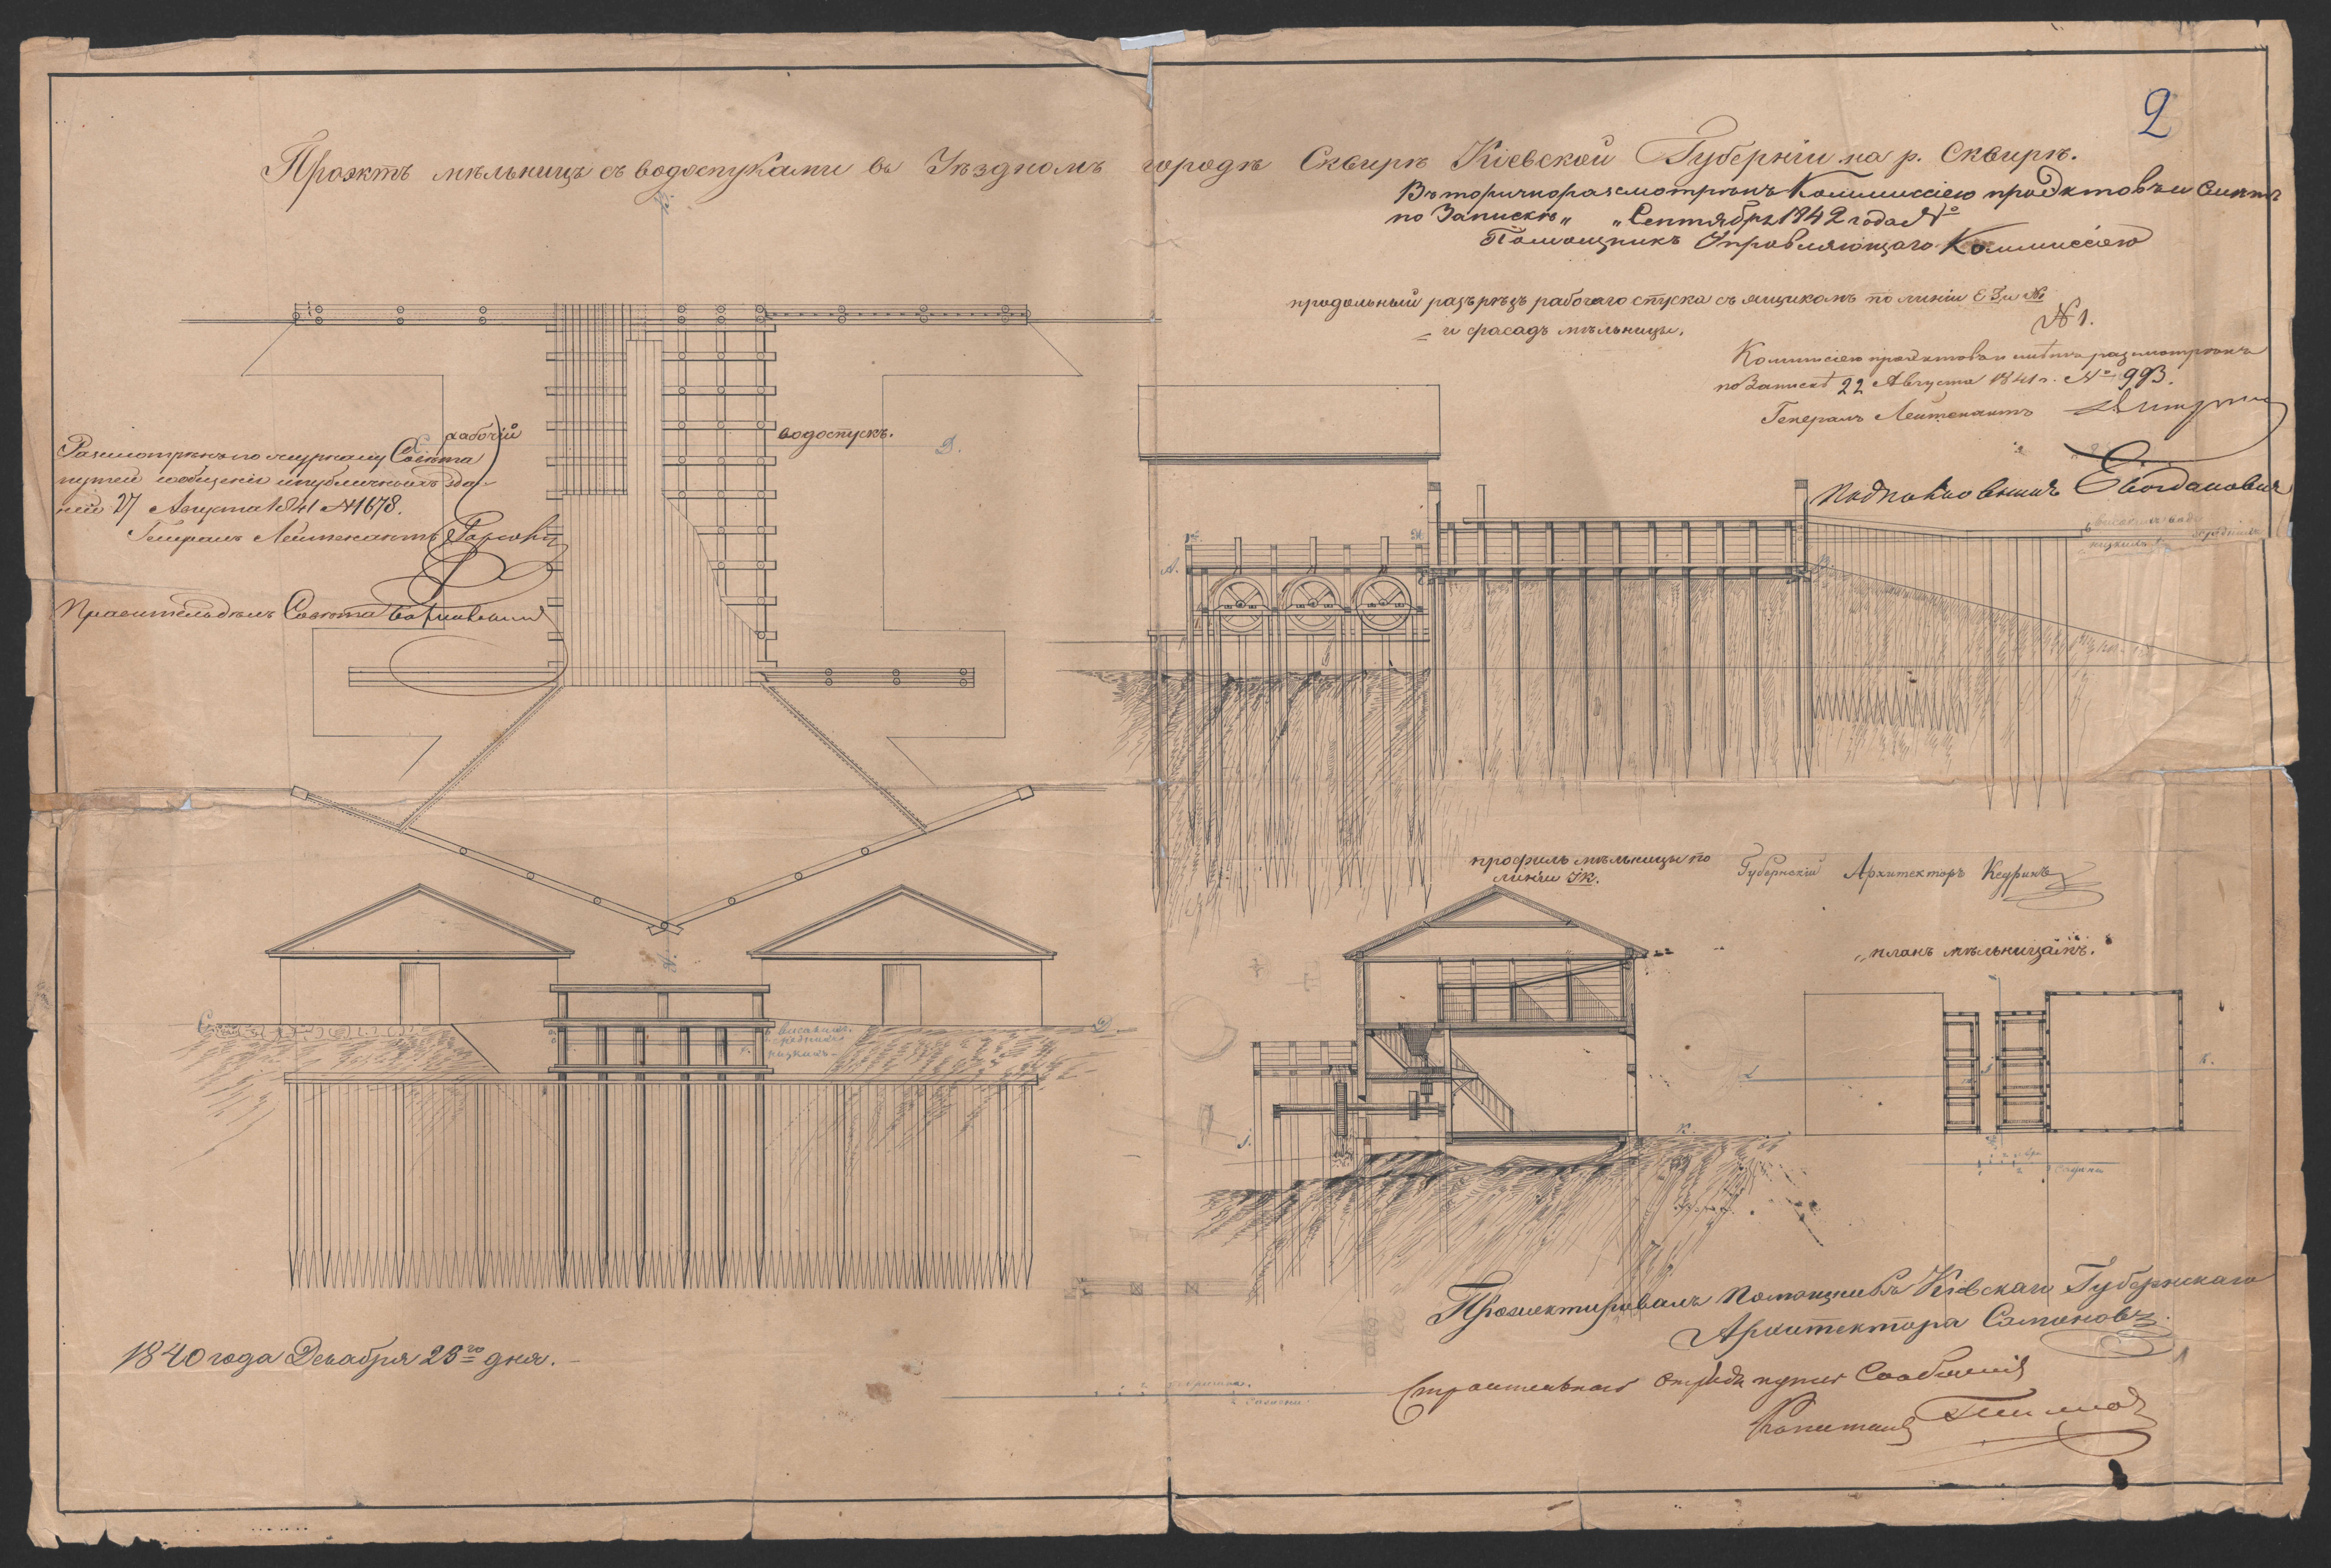 2
Проэктъ мѣльницъ съ водоспусками въ Уѣздномъ городѣ Сквирѣ Кіевской Губерніи на р. Сквирѣ.
Въторично разсмотрѣнъ Коммиссіею проэктовъ и смѣтъ
по Запискѣ „ „ Сентября 1842 года №
Помощникъ Управляющаго Коммиссіею
Подполковникъ Богдановичъ
продольный разърѣзъ рабочаго спуска съ ящикомъ по линіи
и фасадъ мѣльницы.
№ 1.
Коммисіею проэктовъ и смѣтъ разсмотрѣнъ
по Запискѣ 22 Августа 1841 г. № 993.
Генералъ Лейтенантъ
рабочій
водоспускъ.
Д.
Разсмотрѣнъ по журналу Совѣта
путей сообщенія и публичныхъ зда-
ній 27 Августа 1841 № 1678.
Генералъ Лейтенантъ
Правитель дѣлъ Совѣта
А.
профиль мѣльницы по
линіи ІК.
Губернскій Архитекторъ Кедринъ
планъ мѣльницамъ.
С.
Д.
К.
Сажени
1840 года Декабря 23го дня.
Проэктировалъ Помощникъ Кіевскаго Губернскаго
Архитектора Симоновъ
Строительнаго отряда путей Сообщенія
Капитанъ